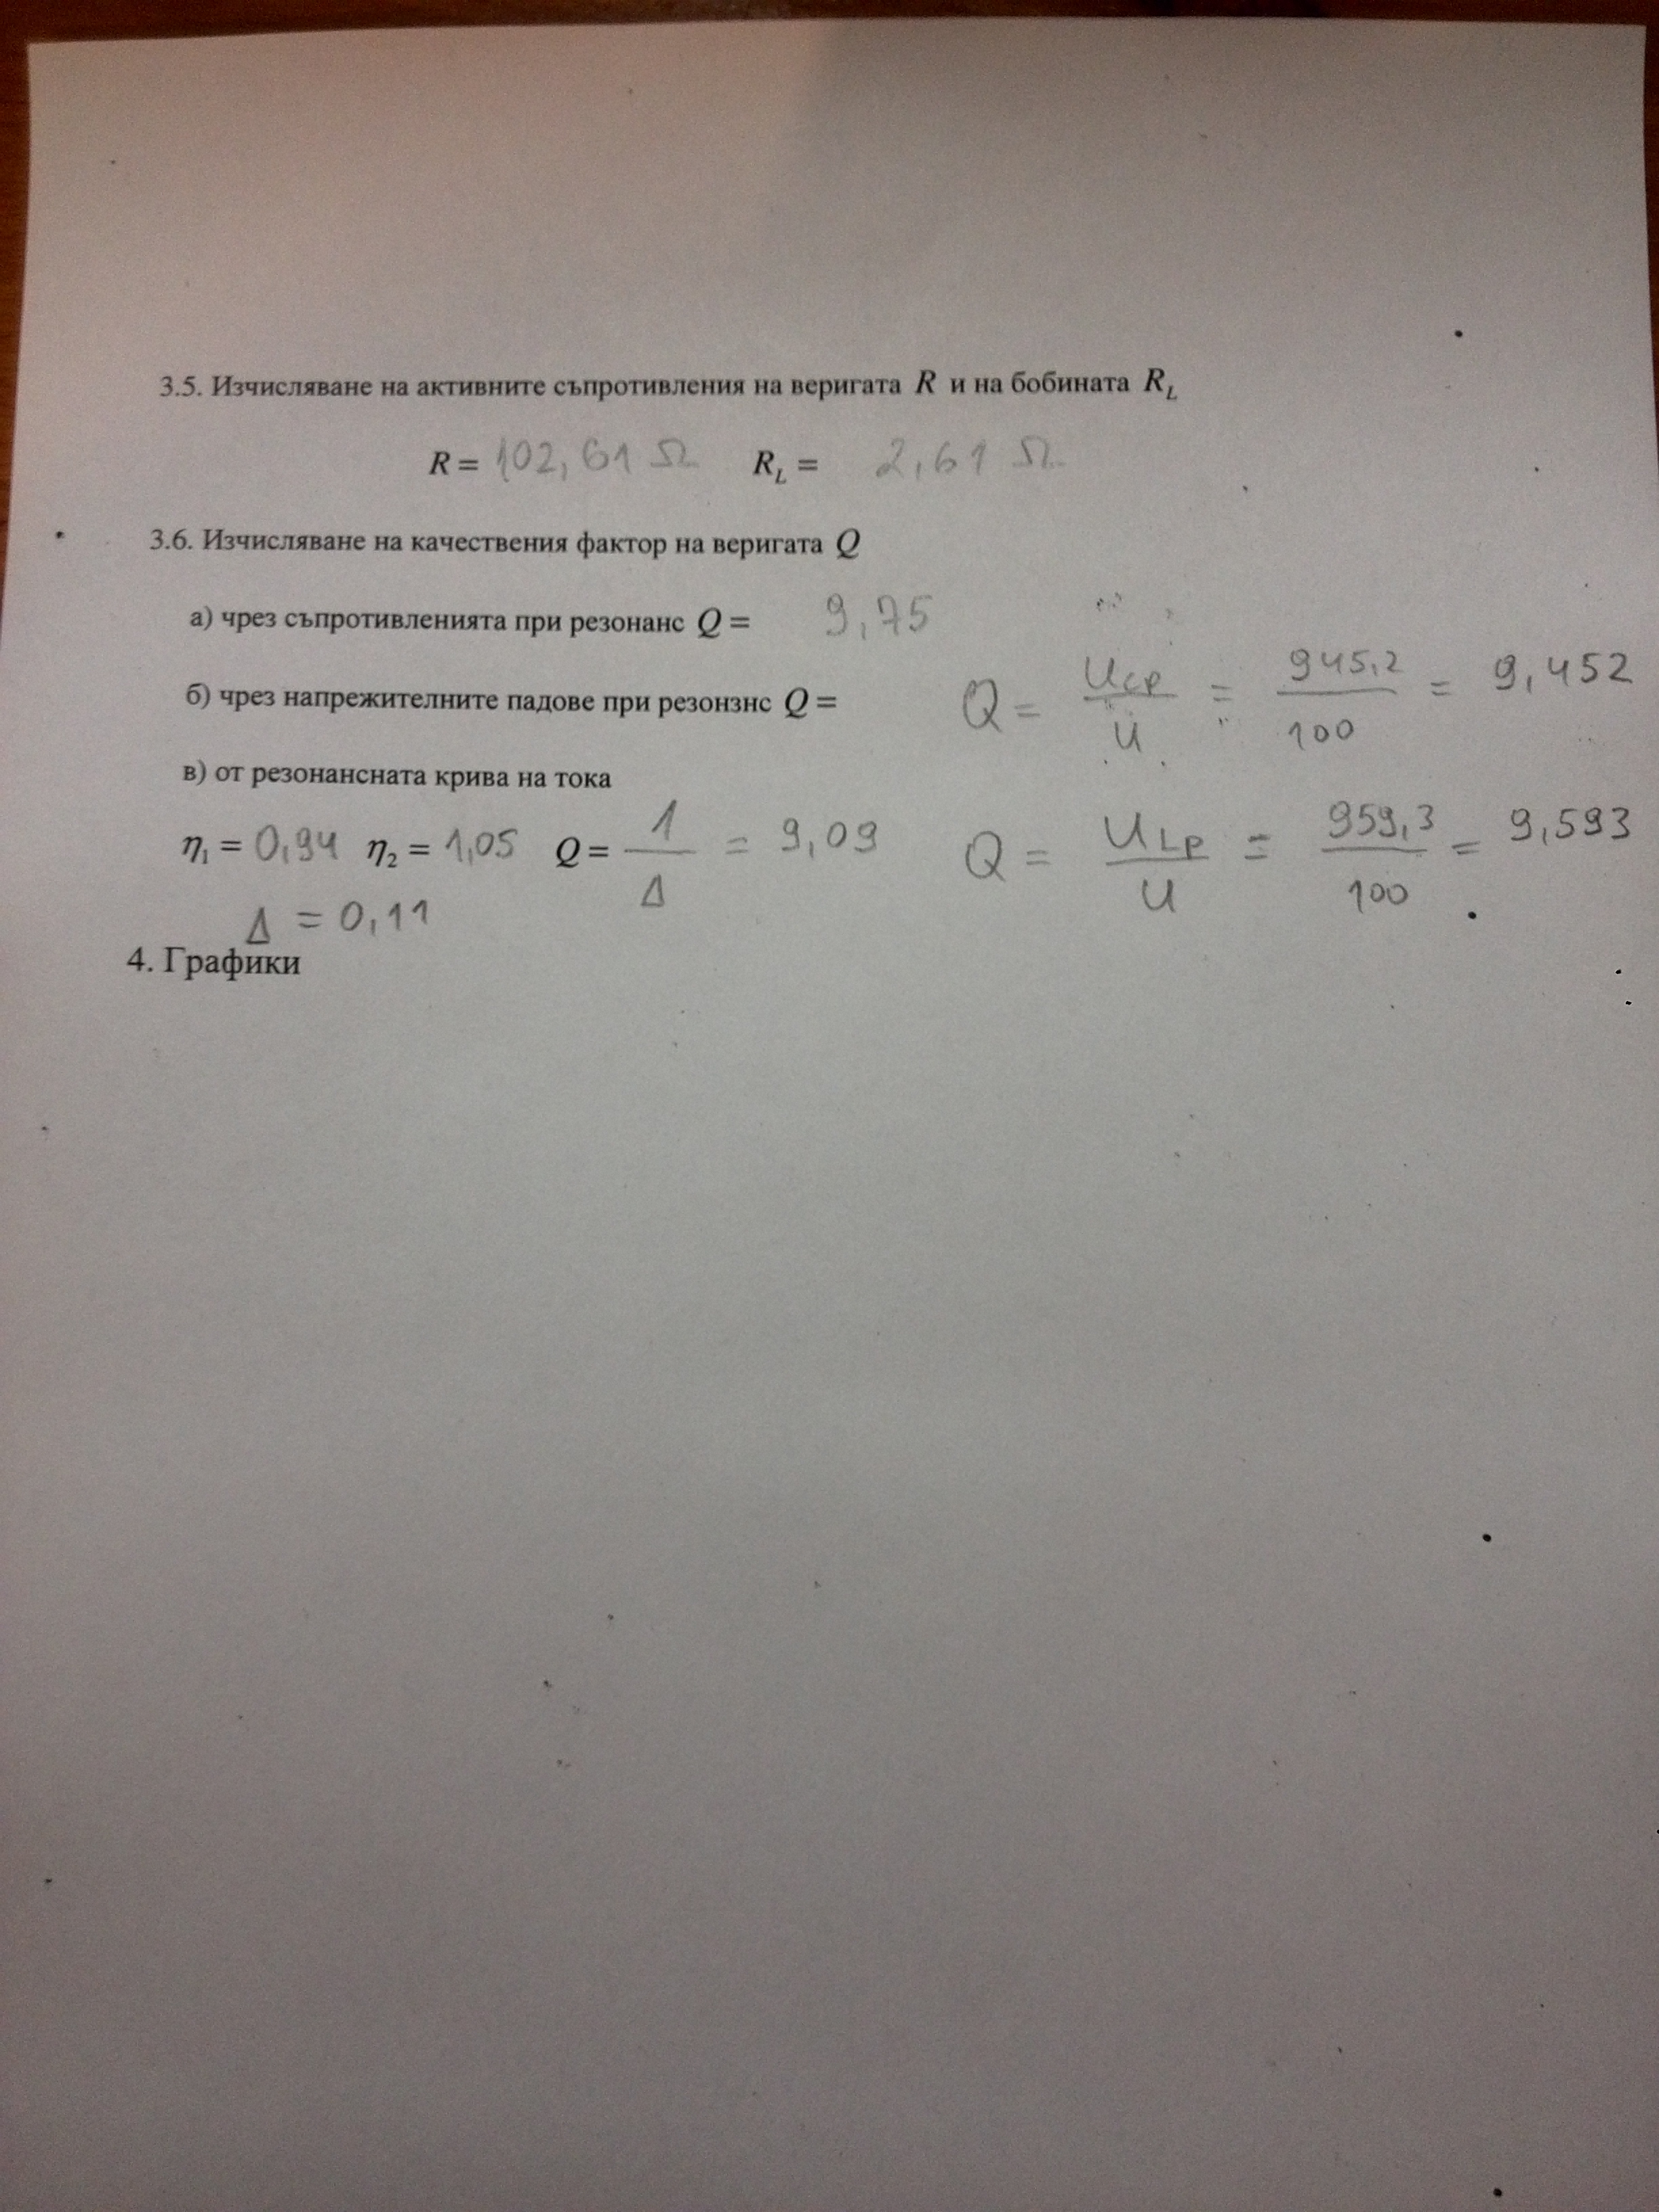 3.5. Изчисляване на активните съпротивления на веригата R и на бобината R_L
R = 102,61 Ω R_L = 2,61 Ω
3.6. Изчисляване на качествения фактор на веригата Q
а) чрез съпротивленията при резонанс Q = 9,75
б) чрез напрежителните падове при резонзнс Q = Q = Uср / U = 945,2 / 100 = 9,452
в) от резонансната крива на тока
η₁ = 0,94 η₂ = 1,05 Q = 1 / Δ = 9,09 Q = ULp / U = 959,3 / 100 = 9,593
Δ = 0,11
4. Графики